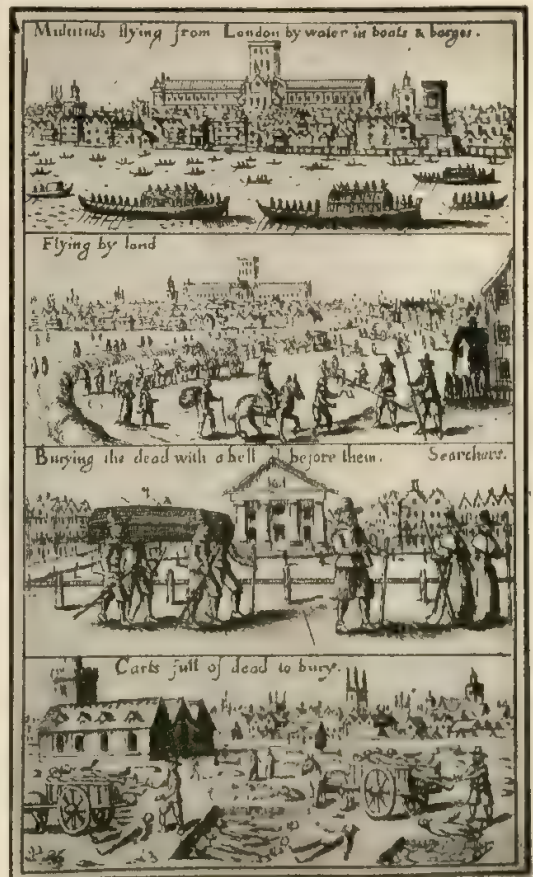 Multituds flying from London by water in boats & barges.
Flying by land
Burying the dead with a bell before them. Searchers.
Carts full of dead to bury.